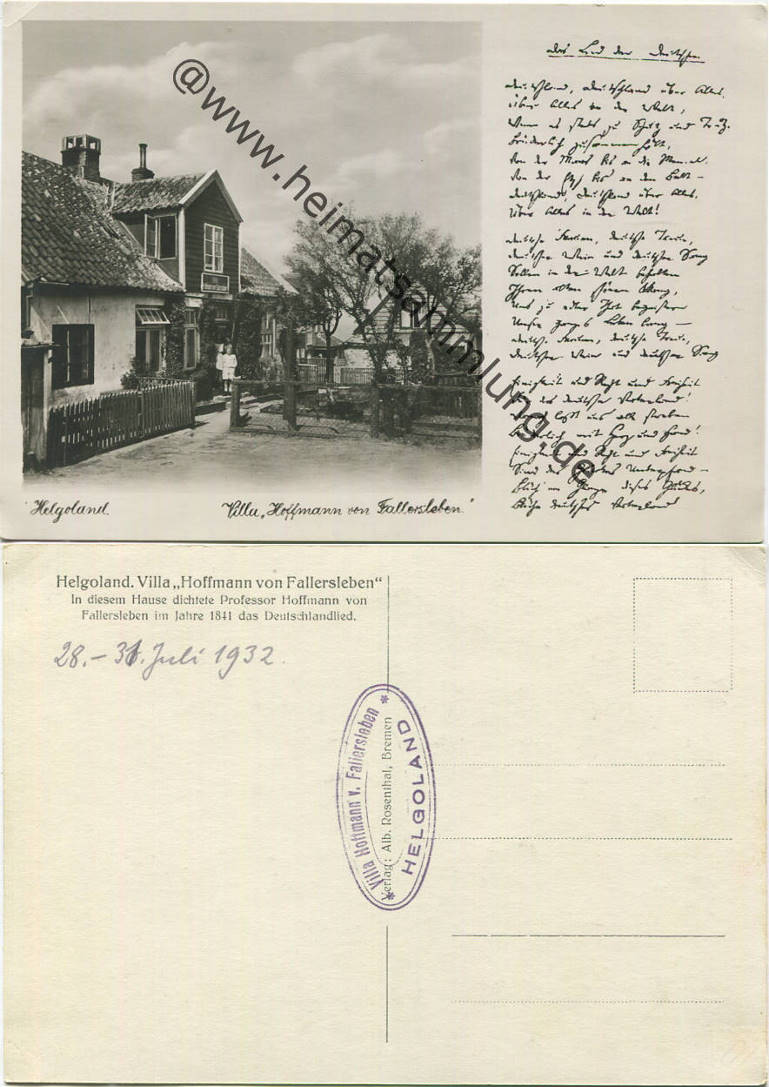 Das Lied der Deutschen
Deutschland, Deutschland über Alles,
Über Alles in der Welt,
Wenn es stets zu Schutz und Trutze
Brüderlich zusammenhält,
Von der Maas bis an die Memel,
Von der Etsch bis an den Belt –
Deutschland, Deutschland über Alles,
Über Alles in der Welt!
Deutsche Frauen, deutsche Treue,
Deutscher Wein und deutscher Sang
Sollen in der Welt behalten
Ihren alten schönen Klang,
Uns zu edler That begeistern
Unser ganzes Leben lang –
Deutsche Frauen, deutsche Treue,
Deutscher Wein und deutscher Sang
Einigkeit und Recht und Freiheit
Für das deutsche Vaterland!
Danach lasst uns alle streben
Brüderlich mit Herz und Hand!
Einigkeit und Recht und Freiheit
Sind des Glückes Unterpfand –
Blüh im Glanze dieses Glückes,
Blühe deutsches Vaterland
@www.heimatsammlung.de
Helgoland. Villa „Hoffmann von Fallersleben"
Helgoland. Villa „Hoffmann von Fallersleben"
In diesem Hause dichtete Professor Hoffmann von
Fallersleben im Jahre 1841 das Deutschlandlied.
28.–31. Juli 1932.
* Villa Hoffmann v. Fallersleben *
HELGOLAND
Verlag: Alb. Rosenthal, Bremen